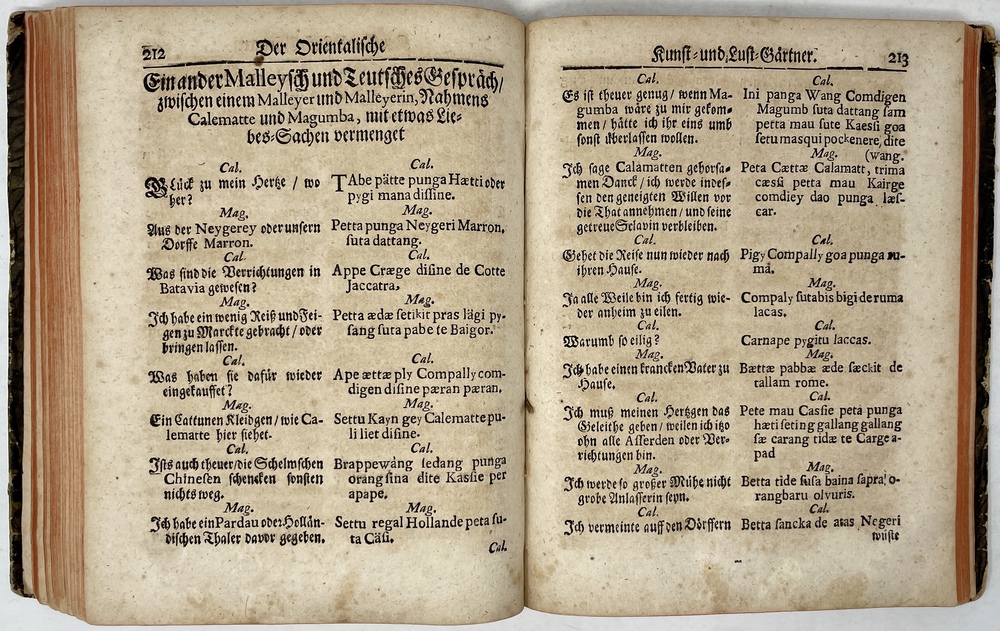 212
Der Orientalische
Ein ander Malleysch und Teutsches Gespräch/
zwischen einem Malleyer und Malleyerin, Nahmens
Calematte und Magumba, mit etwas Lie-
bes-Sachen vermenget
Cal.
Glück zu mein Hertze / wo
her?
Mag.
Aus der Neygerey oder unsern
Dorffe Marron.
Cal.
Was sind die Verrichtungen in
Batavia gewesen?
Mag.
Ich habe ein wenig Reiß und Fei-
gen zu Marckte gebracht / oder
bringen lassen.
Cal.
Was haben sie dafür wieder
eingekauffet?
Mag.
Ein Cattunen Kleidgen / wie Ca-
lematte hier siehet.
Cal.
Ists auch theuer / die Schelmschen
Chinesen schencken sonsten
nichts weg.
Mag.
Ich habe ein Pardau oder Hollän-
dischen Thaler davor gegeben.
Cal.
TAbe pätte punga Hætti oder
pygi mana disline.
Mag.
Petta punga Neygeri Marron,
suta dattang.
Cal.
Appe Cræge disine de Cotte
Jaccatra,
Mag.
Petta ædæ setikit pras lägi py-
sang suta pabe te Baigor.
Cal.
Ape ættæ ply Compally com-
digen disine pæran pæran.
Mag.
Settu Kayn gey Calematte pu-
li liet disine.
Cal.
Brappewång ledang punga
orang sina dite Kassie per
apape.
Mag.
Settu regal Hollande peta su-
ta Cäsi.
Cal.
Kunst- und Lust-Gärtner.
213
Cal.
Es ist theuer genug / wenn Ma-
gumba wäre zu mir gekom-
men / hätte ich ihr eins umb
sonst überlassen wollen.
Mag.
Ich sage Calamatten gehorsa-
men Danck / ich werde indes-
sen den geneigten Willen vor
die That annehmen / und seine
getreue Sclavin verbleiben.
Cal.
Gehet die Reise nun wieder nach
ihren Hause.
Mag.
Ja alle Weile bin ich fertig wie-
der anheim zu eilen.
Cal.
Warumb so eilig?
Mag.
Ich habe einen krancken Vater zu
Hause.
Cal.
Ich muß meinen Hertzgen das
Geleithe geben / weilen ich itzo
ohn alle Afferden oder Ver-
richtungen bin.
Mag.
Ich werde so großer Mühe nicht
grobe Anlasserin seyn.
Cal.
Ich vermeinte auff den Dörffern
Cal.
Ini panga Wang Comdigen
Magumb suta dattang sam
petta mau sute Kaessi goa
setu masqui pockenere, dite
Mag. (wang.
Peta Cættæ Calamatt, trima
cæssi petta mau Kairge
comdiey dao punga læs-
car.
Cal.
Pigy Compally goa punga ru-
ma.
Mag.
Compaly sutabis bigi de ruma
lacas.
Cal.
Carnape pygitu laccas.
Mag.
Bættæ pabbæ æde sæckit de
tallam rome.
Cal.
Pete mau Cassie peta punga
hæti seting gallang gallang
sæ carang tidæ te Carge a-
pad
Mag.
Betta tide susa baina sapra o-
rangbaru olvuris.
Cal.
Betta sancka de atas Negeri
wüste